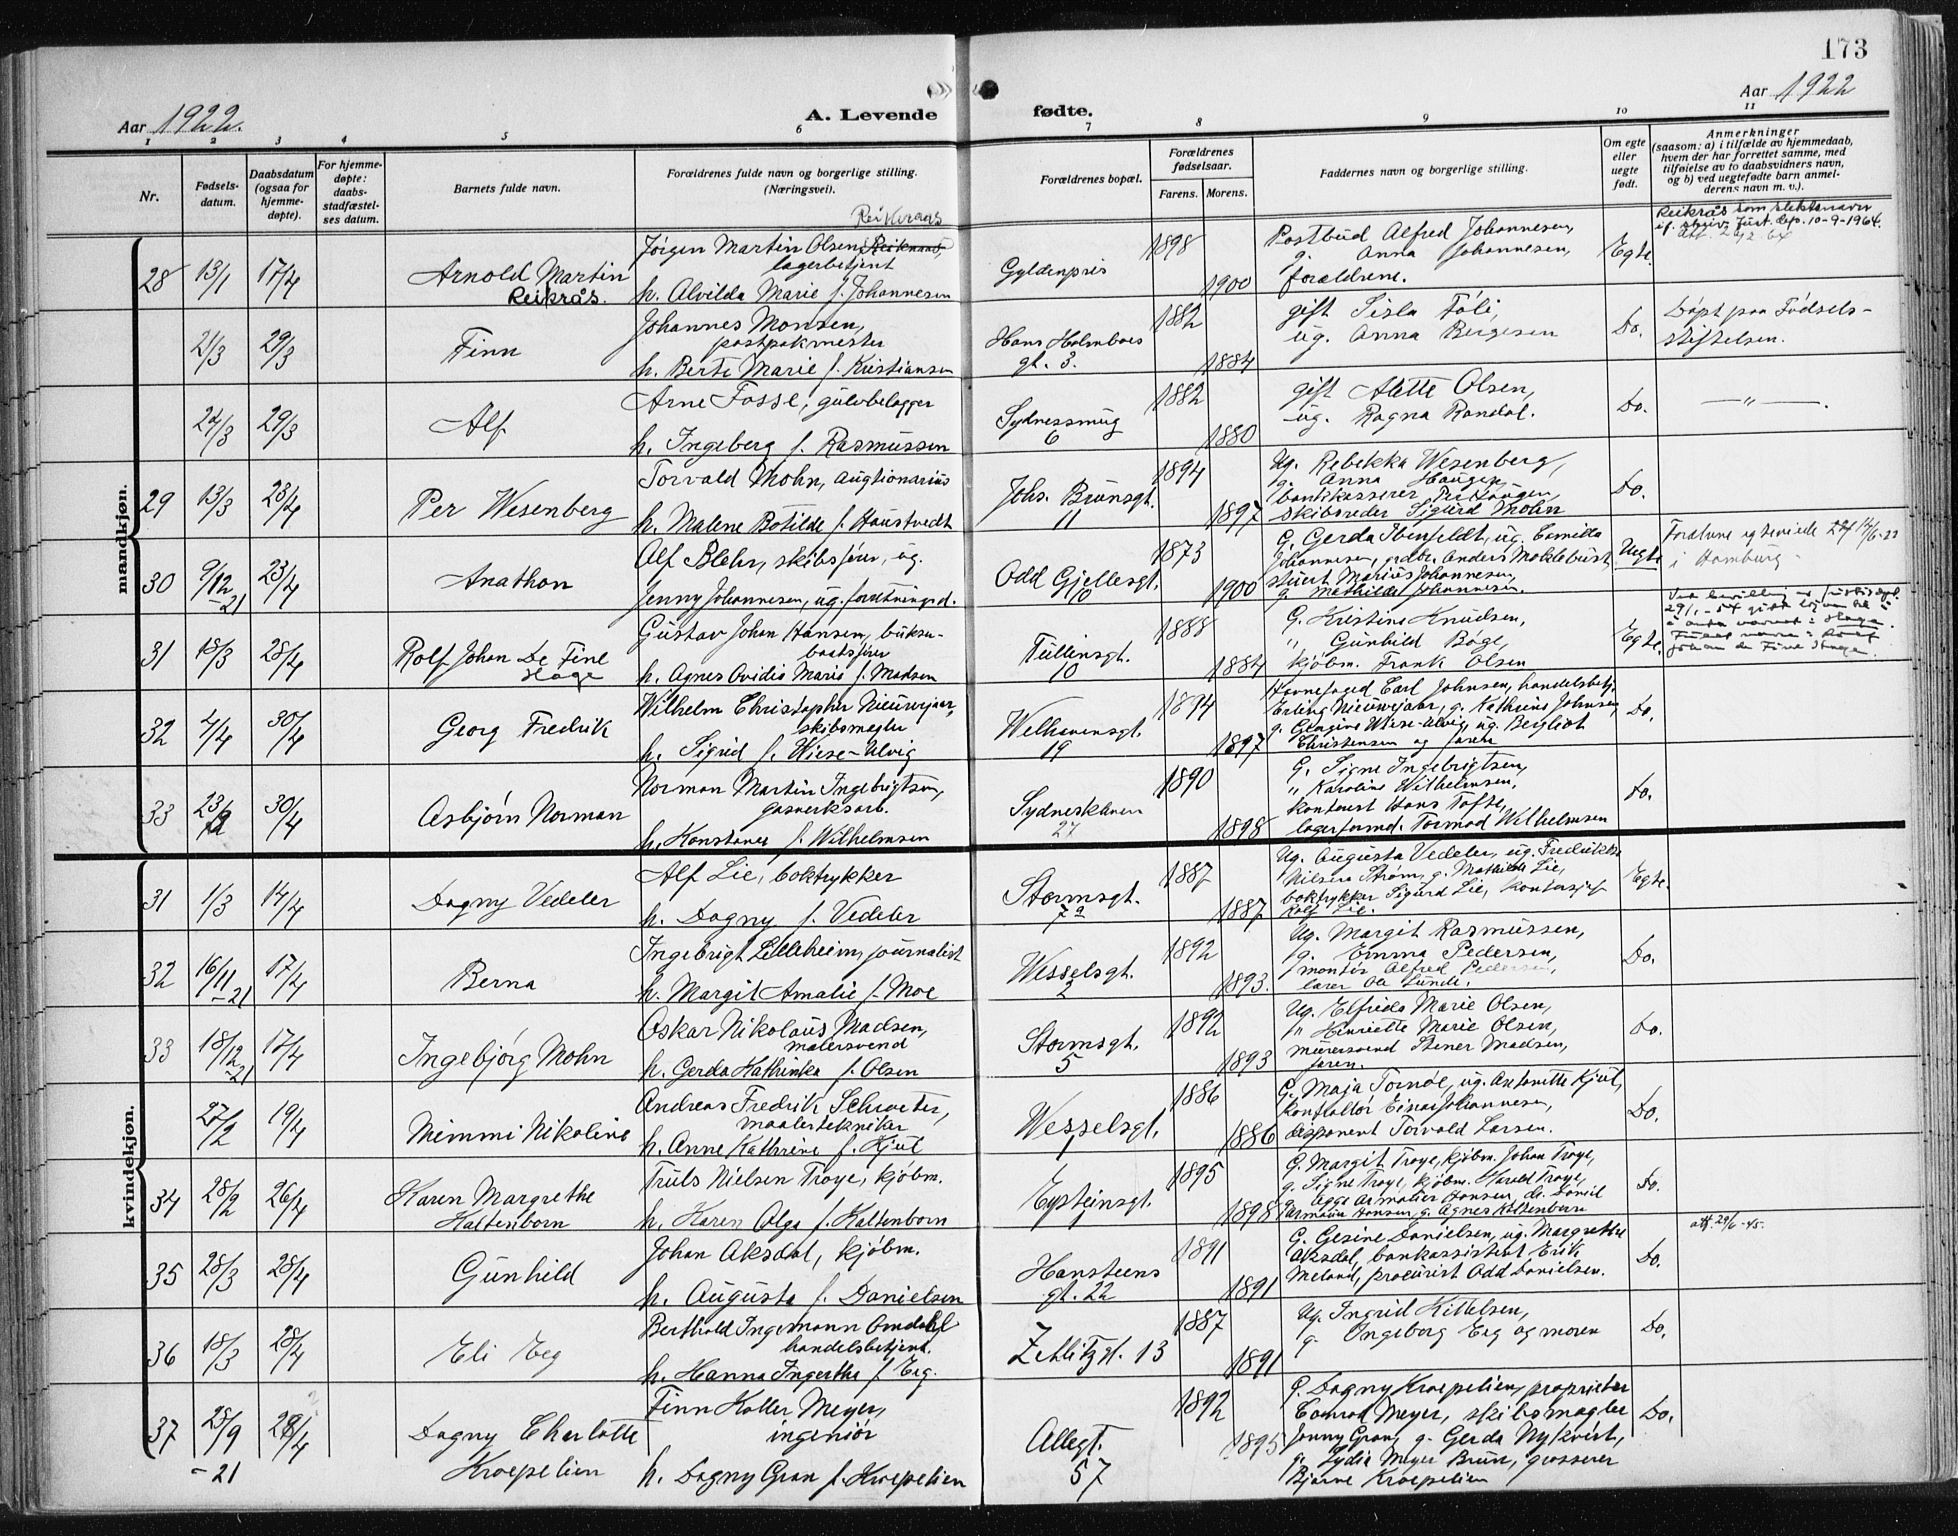 173
Aar 1922.
A. Levende
fødte.
Aar 1922
1 2 3 4 5 6 7 8 9 10 11
Nr.
Fødsels-
datum.
Daabsdatum
(ogsaa for
hjemme-
døpte).
For hjemme-
døpte:
daabs-
stadfæstel-
ses datum.
Barnets fulde navn.
Forældrenes fulde navn og borgerlige stilling.
(Næringsvei).
Forældrenes bopæl.
Forældrenes
fødselsaar.
Farens. Morens.
Faddernes navn og borgerlige stilling.
Om egte
eller
uegte
født.
Anmerkninger
(saasom: a) i tilfælde av hjemmedaab,
hvem der har forrettet samme, med
tilføielse av to daabsvidners navn,
og b) ved uegtefødte barn anmel-
derens navn m. v.).
mandkjøn.
28 13/1 17/4
Arnold Martin
Reikrås.
Reikraas
Jørgen Martin Olsen Reiknaas,
lagerbetjent
h. Alvilda Marie f. Johannesen
Gyldenpris
1898
1900
Postbud Alfred Johannesen,
g. Anna Johannesen,
forældrene.
Egte.
Reikrås som slektsnavn
if. skriv Just. dep. 10-9-1964.
Att. 2/12.64
2/3 29/3
Finn
Johannes Monsen,
postpakmester
h. Berte Marie f. Kristiansen
Hans Holmboes
gt. 3.
1882
1884
gift Sisla Føli,
ug. Anna Bergesen
Do.
Døpt paa Fødsels-
stiftelsen.
24/3 29/3
Alf
Arne Fosse, gulvbelægger
h. Ingeberg f. Rasmussen
Sydnessmug
6
1882
1880
gift Alette Olsen,
ug. Ragna Randal.
Do.
— " —
29 13/3 23/4
Per Wesenberg
Torvald Mohn, auqtionarius
h. Malene Botilde f. Haustvedt
Johs. Brunsgt.
11
1894
1897
Ug. Rebekka Wesenberg,
g. Anna Haugen,
bankkasserer Per Haugen,
skibsreder Sigurd Mohn
Do.
30 9/12 -21 23/4
Anathon
Alf Blehr, skibsfører, ug.
Jenny Johannesen, ug. forretningsd.
Odd Gjellesgt.
10
1873
1900
G. Gerda Ibenfeldt, ug. Camilla
Johannesen, Anders Moldebust,
stuert Marius Johannesen,
g. Mathilde Johannesen.
Uegte
Forældrene egteviede 14/6-22
i Hamburg.
31 18/3 28/4
Rolf Johan De Fine
Hage
Gustav Johan Hansen, buksu-
baatsfører
h. Agnes Ovidia Marie f. Madsen
Tullinsgt.
10
1888
1884
G. Kristine Knudsen,
" Gunhild Bøge,
kjøbm. Frank Olsen
Egte.
32 4/4 30/4
Georg Fredrik
Wilhelm Christopher Nieuwejaar,
skibsmegler
h. Sigrid f. Wiese-Ulvig
Welhavensgt.
19
1894
1897
Havnefoged Carl Johnsen, handelsbetj.
Erling Nieuwejaar, g. Kathrine Johnsen,
g. Georgine Wiese-Ulvig, ug. Bergliot
Christensen og faren
Do.
33 23/2 30/4
Asbjørn Norman
Norman Martin Ingebrigtsen,
gasverksarb.
h. Konstance f. Wilhelmsen
Sydneskleven
27
1890
1898
G. Signe Ingebrigtsen,
" Karoline Wilhelmsen,
kontorist Hans Tofte,
lagerformd. Tormod Wilhelmsen
Do.
kvindekjøn.
31 1/3 14/4
Dagny Vedeler
Alf Lie, boktrykker
h. Dagny f. Vedeler
Stormsgt.
7a
1887
1887
Ug. Augusta Vedeler, ug. Fredrikke
Nilsen Strøm, g. Mathilde Lie,
boktrykker Sigurd Lie, kontorsjef
Rolf Lie.
Egte.
32 16/11 -21 17/4
Berna
Ingebrigt Lilleheim, journalist
h. Margit Amalie f. Moe
Wesselsgt.
2
1892
1893.
Ug. Margit Rasmussen,
g. Emma Pedersen,
montør Alfred Pedersen,
lærer Ole Lunde.
Do.
33 18/12 -21 17/4
Ingebjørg Mohn
Oskar Nikolaus Madsen,
malersvend
h. Gerda Kathinka f. Olsen
Stormsgt.
5
1892
1893
Ug. Elfrida Marie Olsen,
" Henriette Marie Olsen,
murersvend Stener Madsen,
faren.
Do.
27/2 19/4
Mimmi Nikoline
Andreas Fredrik Schrøeter,
maalertekniker
h. Anne Kathrine f. Hjul
Wesselsgt.
1
1886
1886
G. Maja Tornøe, ug. Antonette Kjul,
kontrollør Einar Johannesen,
disponent Torvald Larsen.
Do.
34 28/2 26/4
Karen Margrethe
Kaltenborn
Truls Nielsen Troye, kjøbm.
h. Karen Olga f. Kaltenborn
Eysteinsgt.
1
1895
1898
G. Margit Troye, kjøbm. Johan Troye,
g. Signe Troye, kjøbm. Harald Troye,
g. Agge Amalier Hansen, do. Daniel
Hansen, g. Agnes Kaltenborn
Do.
att. 29/6-45.
35 28/3 28/4
Gunhild
Johan Aksdal, kjøbm.
h. Augusta f. Danielsen
Hansteens
gt. 22
1891
1891
G. Gesine Danielsen, ug. Margrethe
Aksdal, bankassistent Erik
Meland, procurist Odd Danielsen.
Do.
36 18/3 28/4
Eli Eeg
Berthold Ingemann Omdahl
handelsbetjent.
h. Hanna Ingerthe f. Eeg.
Zetlitzgt. 13
1887
1891
Ug. Ingrid Kittelsen,
g. Ingeborg Eeg og moren
Do.
37 25/9 -21 28/4
Dagny Charlotte
Kroepelien
Finn Koller Meyer,
ingeniør
h. Dagny Gran f. Kroepelien
Allegt.
57
1892
1895
G. Dagny Kroepelien, proprietær
Conrad Meyer, skibsmægler
Jonny Gran, g. Gerda Nykvist,
g. Lydia Meyer Brun, grosserer
Bjarne Kroepelien
Do.